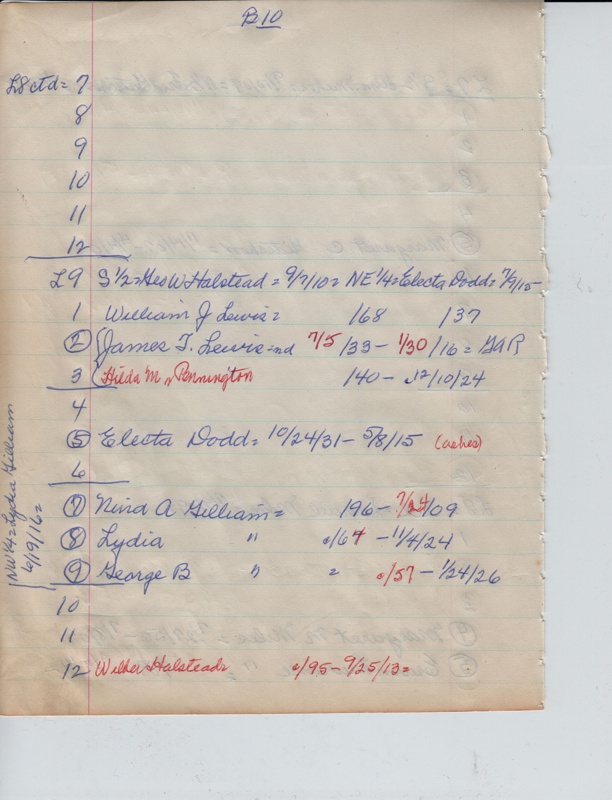 B10
L8 ctd = 7
8
9
10
11
12
L9 S 1/2 = Geo W Halstead = 9/7/10 = NE 1/4 = Electa Dodd = 7/9/15
1 William J Lewis = 168 137
② James T. Lewis = nd 7/5/33 - 1/30/16 = GAR
3 Hilda M Pennington 140 - 12/10/24
4
⑤ Electa Dodd = 10/24/31 - 5/8/15 (ashes)
6
⑦ Nina A Gilliam = 196 - 7/24/09
⑧ Lydia " c/64 - 11/4/24
⑨ George B " = c/57 - 1/24/26
10
11
12 Wilber Halsteads c/95 - 9/25/13 =
NW 1/4 = Lydia Gilliam
6/19/16 =